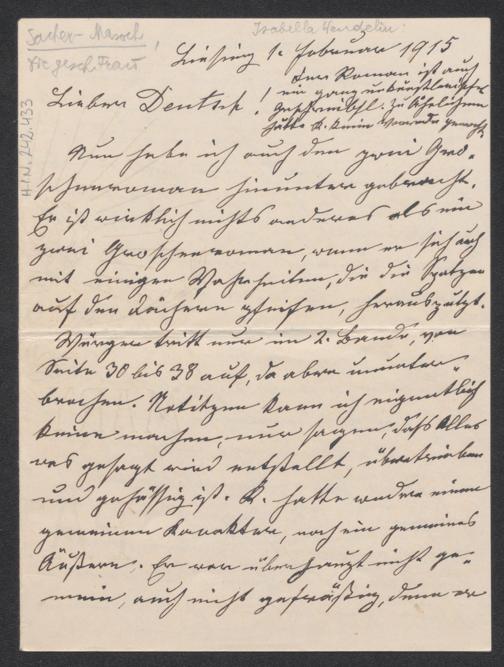 Sacher-Masoch,
Die gesch. Frau
Isabella Wendelin.
H.I.N. 242.433
Liesing 1. Februar 1915
Lieber Deutsch!
Der Roman ist auch
ein ganz unkünstlerisches
zu Ähnlichem
hätte K. keine Freude gehabt.
Nun habe ich auch den zwei Gro-
schenroman hinunter gebracht.
Er ist wirklich nichts anderes als ein
zwei Groschenroman, wenn er sich auch
mit einigen Wahrheiten, die die Spatzen
auf den Dächern pfeifen, herausputzt.
Würger tritt nur im 2. Bande, von
Seite 30 bis 38 auf, da aber ununter-
brochen. Notitzen kann ich eigentlich
keine machen, nur sagen, dass Alles
was gesagt wird entstellt, übertrieben
und gehässig ist. K. hatte weder einen
gemeinen Karakter, noch ein gemeines
Äußere. Er war überhaupt nicht ge-
mein, auch nicht gefräßig, denn er